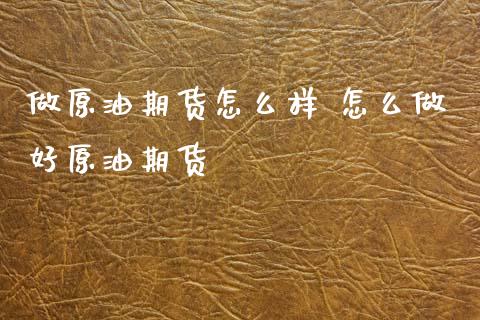 做原油期货怎么样 怎么做
好原油期货